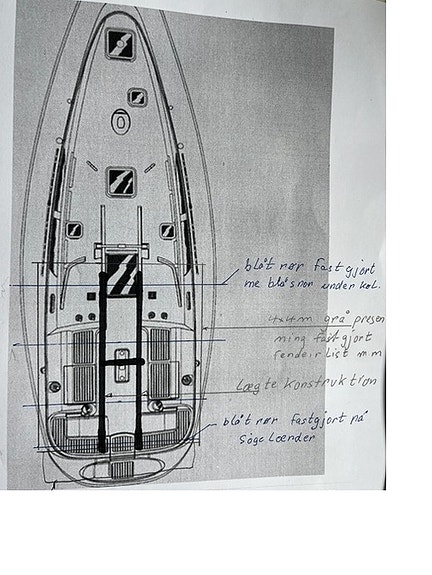 blåt rør fastgjort
me blå snor under køl.
4x4m grå presen
ning fastgjort
fendeir list m m
Lægte Konstruktion
blåt rør fastgjort på